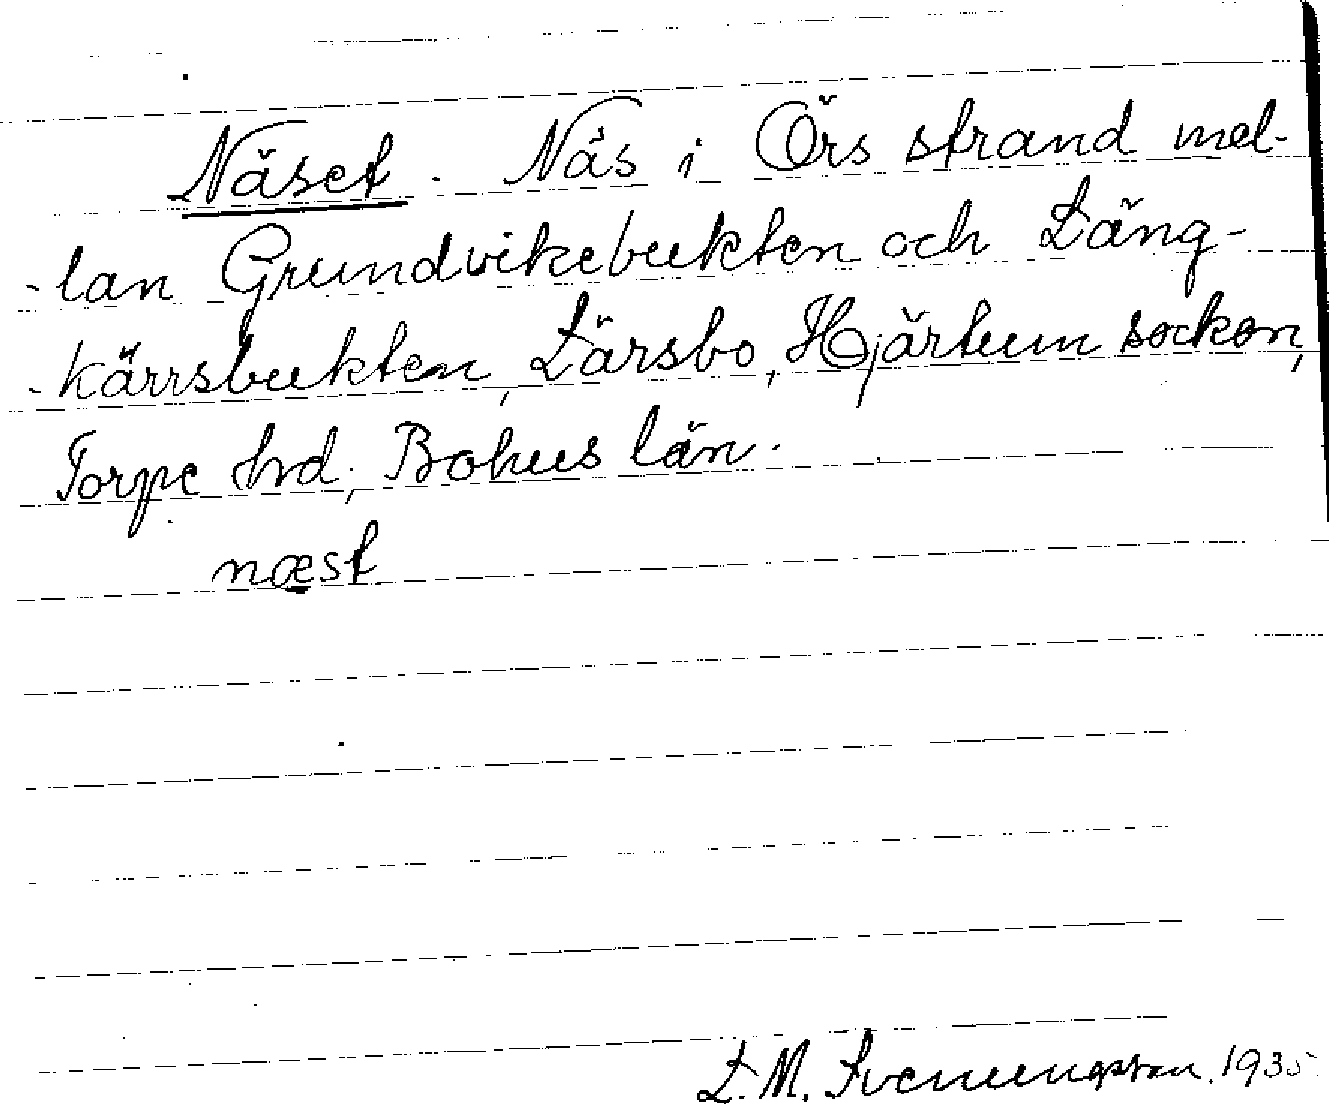 Näset. Näs i Örs strand mel-
-lan Grundvikebukten och Lång-
-kärrsbukten, Lärsbo, Hjärtum socken,
Torpe hrd, Bohus län.
næst
L. M. Svenungsson. 1935